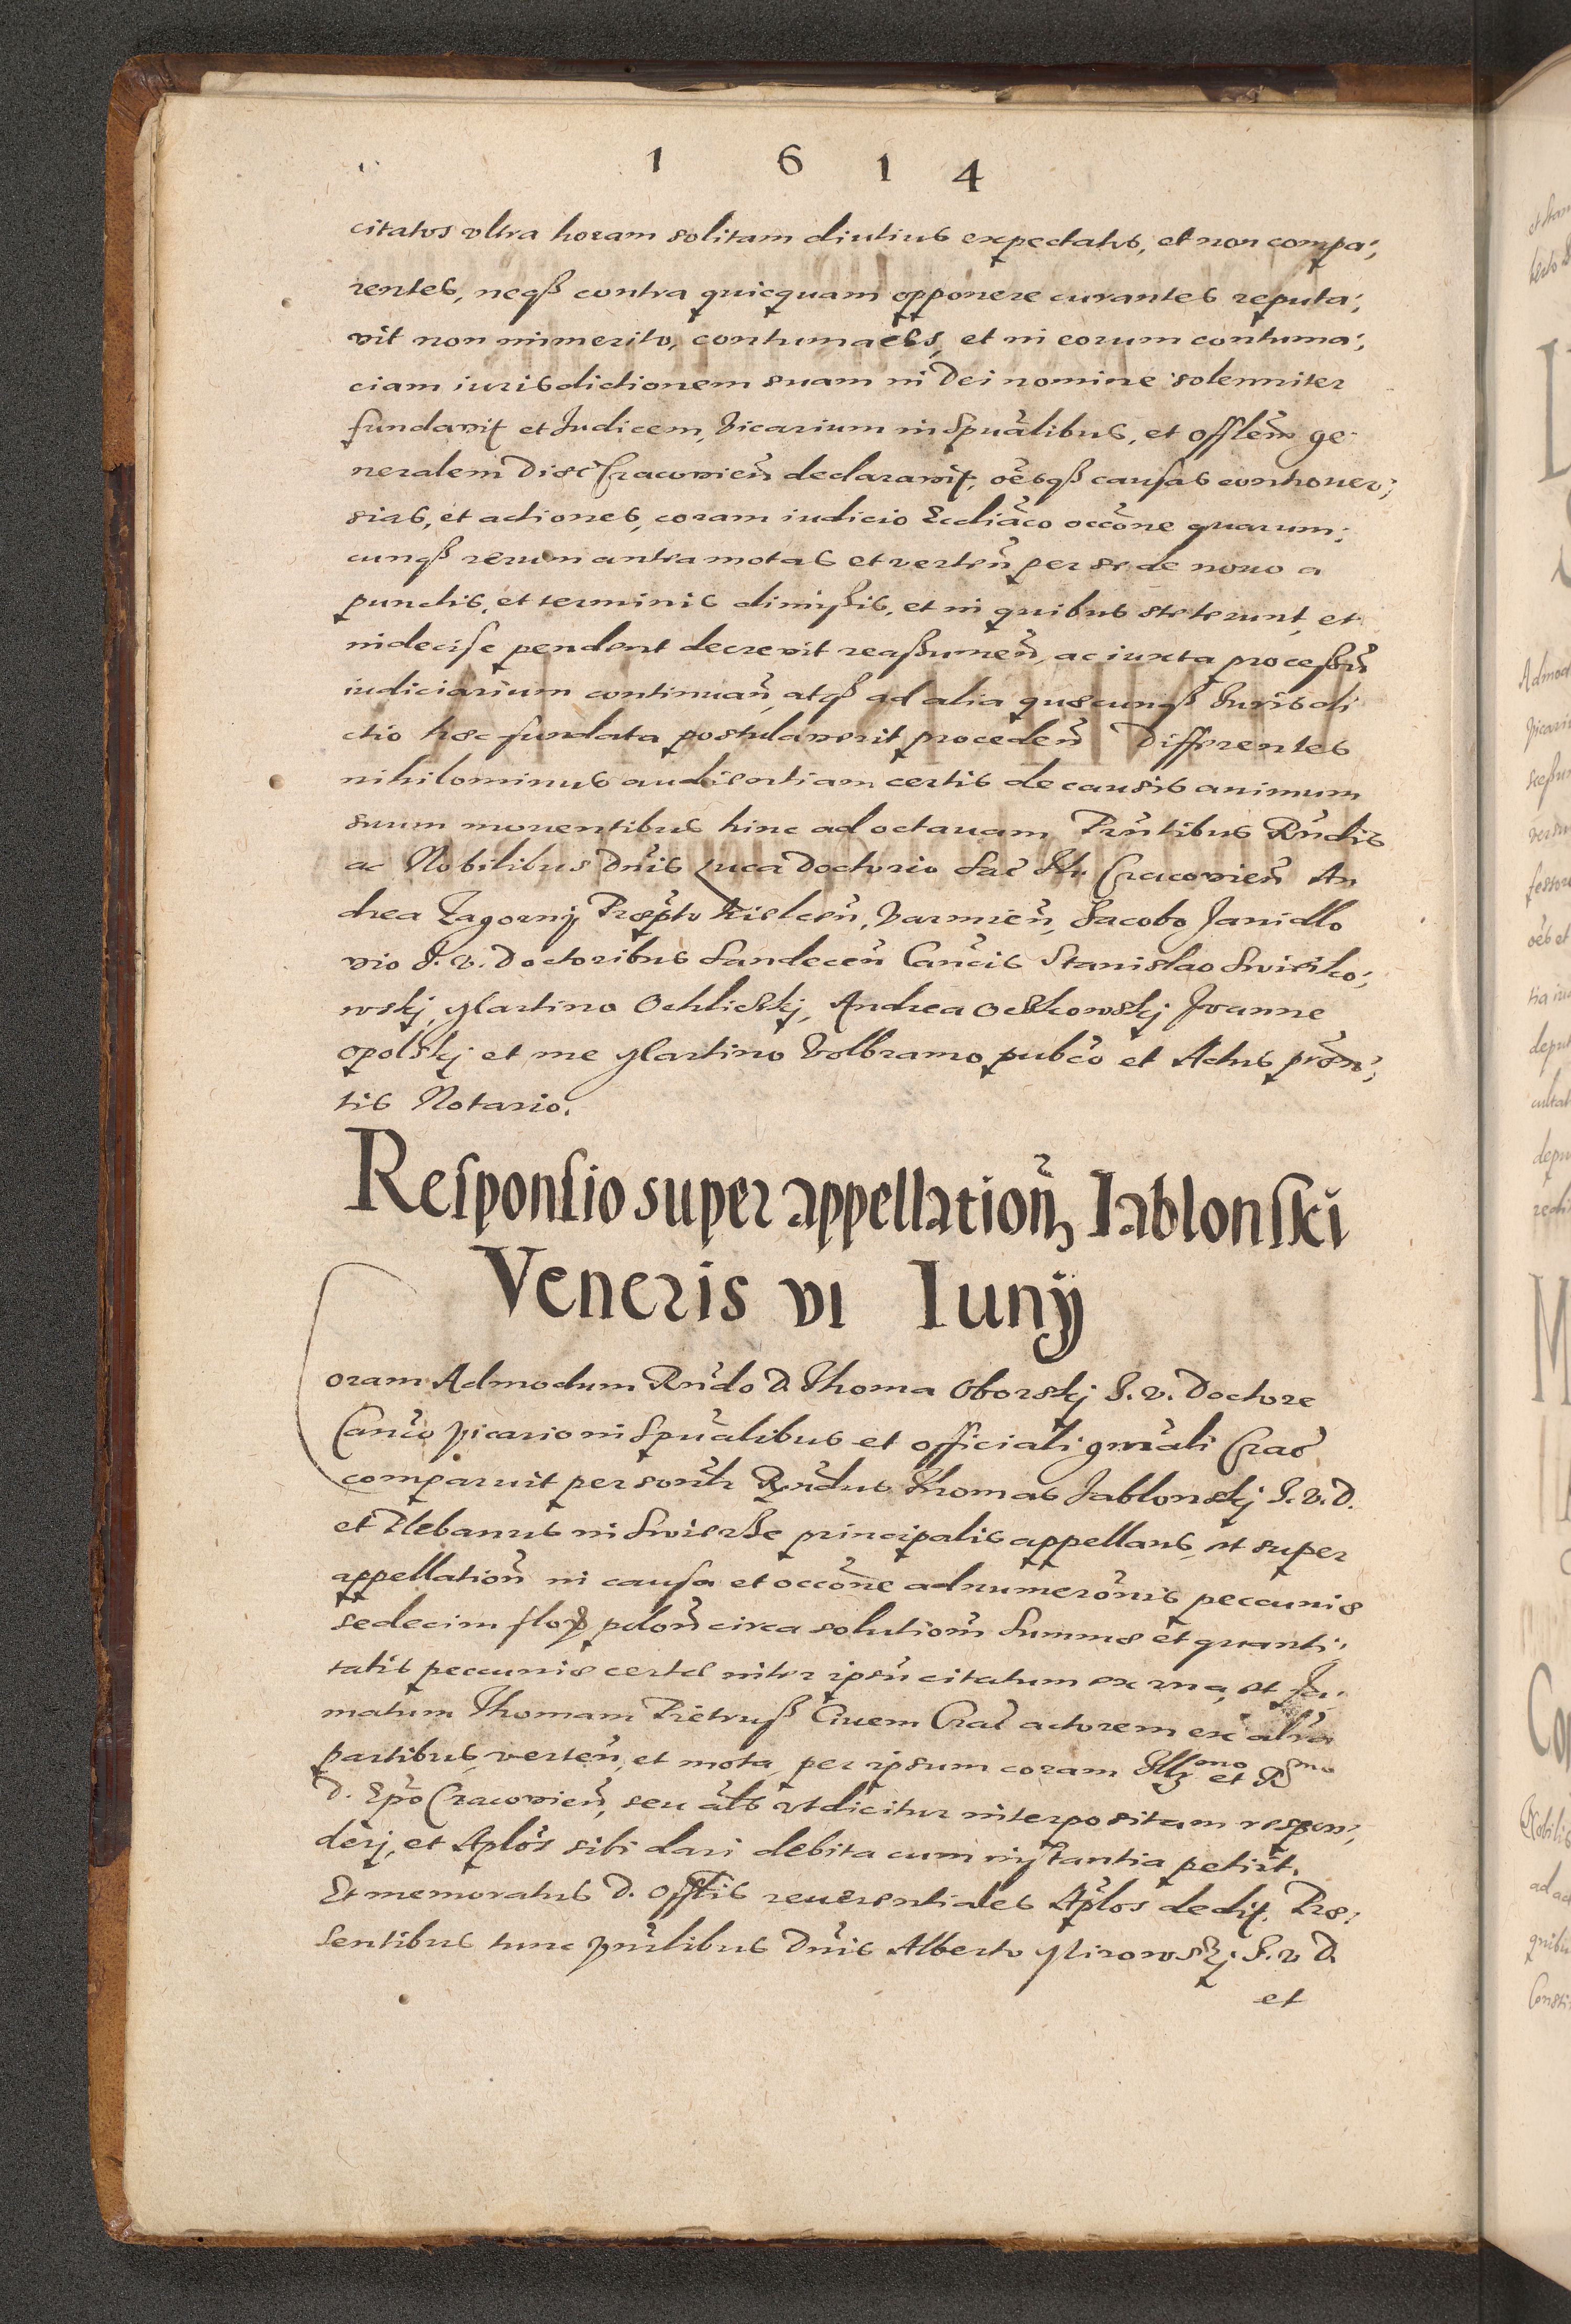 1 6 1 4
citatos vltra horam solitam diutius expectatos, et non compa;
rentes, neqß contra quicquam opponere curantes reputa;
vit non immerito, contumaces, et in eorum contuma;
ciam iurisdictionem suam in Dei nomine solenniter
fundavit et Iudicem, Vicarium in Spũalibus, et offlem̃ ge
neralem Dioec̃ Cracovien̄ declaravit, oẽsqß causas controuer;
sias, et actiones, coram iudicio Ecclĩaco occõne quarum;
cunqß rerum antea motas et verten̄ per se de nouo a
punctis, et terminis dimißis, et in quibus steterunt, et
indecise pendent decrevit reaßumen̄, ac iuxta processum̃
iudiciarium continuan̄, atqß ad alia quaecunqß Iurisdi
ctio haec fundata postulaverit proceden̄ Differentes
nihilominus audientiam certis de causis animum
suum mouentibus hinc ad octauam Pñtibus Rñdis
ac Nobilibus Dñis Luca Doctorio Sac̃ Th. Cracovien̄ An
drea Zagorny Praepto Kielcen̄, Varmien̄, Iacobo Janidlo
vio I. v. Doctoribus Sandecen̄ Cañcis Stanislao Swirsko;
wskj, Martino Ochlickj, Andrea Oczkowskj Joanne
opolskj et me Martino Volbramo pubc̃o et Actus prãn;
tis Notario.
Responsio super appellation̄ Iablonski
Veneris vi Iunÿ
Coram Admodum Rñdo D. Thoma Oborskj I. v. Doctore
Cañco Vicario in Spũalibus et officiali gñrali Crac̃
comparuit personlr̃ Rñdus Thomas Jablonskj I. v. D.
et Plebanus in Swierße principalis appellans, et super
appellation̄ in causa et occõne adnumerõnis peccuniae
sedecim flor polon̄ circa solution̄ Summae et quanti;
tatis peccuniae certae inter ipsũ citatum ex vna, et fa;
matum Thomam Pietruß Ciuem Crac̃ actorem ex altera
partibus, verten̄, et mota, per ipsum coram Illmo et Rmo
D. Epõ Cracovien̄, seu als̃ vt dicitur interpositam respon;
derj, et Aplõs sibi dari debita cum instantia petijt.
Et memoratus D. Offlis reuerentiales Aplõs dedit. Prae;
sentibus tunc Dñis Alberto Mirowskj I. v D.
et